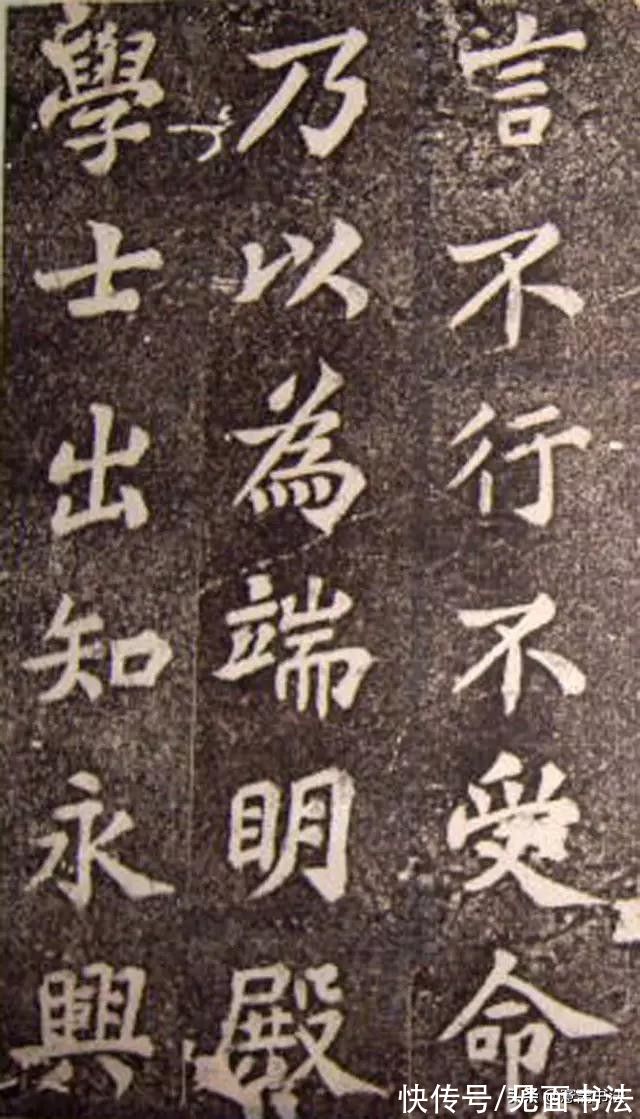 言不行不受命
乃以為端明殿
學士出知永興
快传号/见面书法